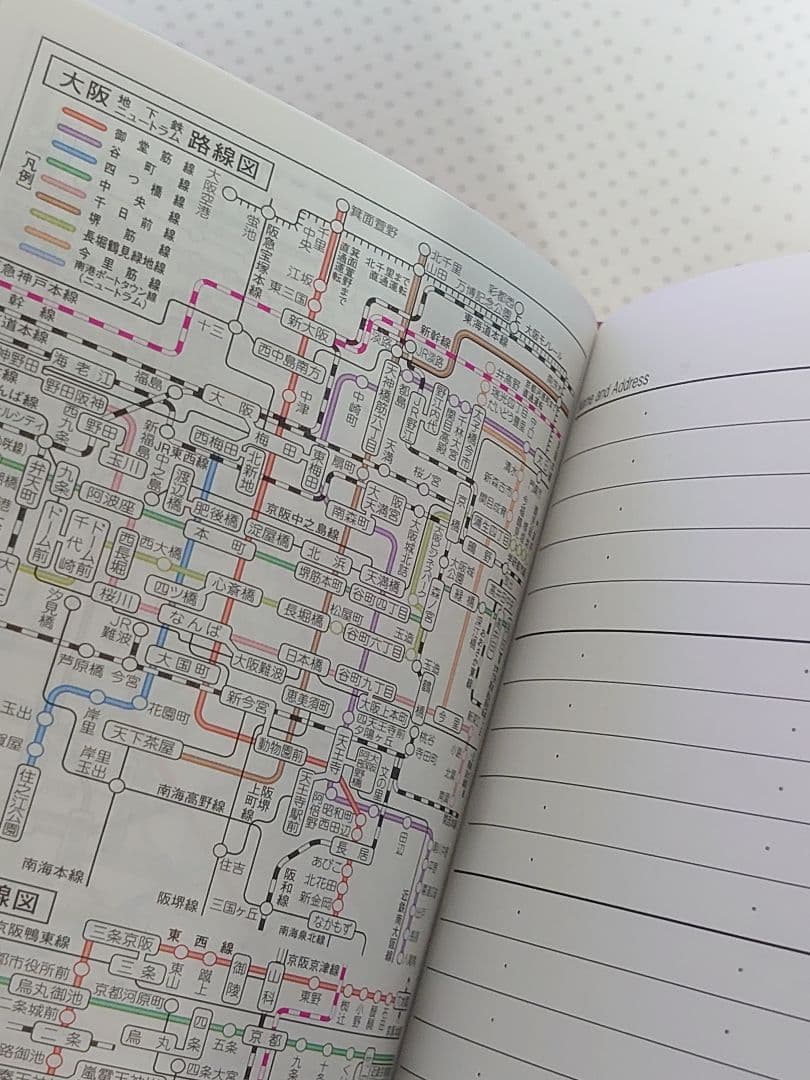 大阪 地下鉄 ニュートラム 路線図
[凡例]
御堂筋線
谷町線
四つ橋線
中央線
千日前線
堺筋線
長堀鶴見緑地線
今里筋線
南港ポートタウン線
(ニュートラム)
大阪空港
蛍池
阪急宝塚本線
千里中央
箕面萱野
箕面萱野まで直通運転
北千里まで直通運転
北千里
山田
万博記念公園
彩都西
大阪モノレール
東海道本線
江坂
東三国
新大阪
新幹線
淡路
JR淡路
急神戸本線
幹線
道本線
十三
西中島南方
中津
中崎町
天神橋筋六丁目
都島
野江内代
JR野江
関目高殿
千林大宮
太子橋今市
井高野
瑞光四丁目
だいどう豊里
Name and Address
神野田
海老江
野田阪神
福島
大阪
梅田
西梅田
東梅田
北新地
扇町
天満
桜ノ宮
西九条
野田
玉川
新福島
中之島
JR東西線
渡辺橋
肥後橋
京阪中之島線
淀屋橋
北浜
南森町
大阪天満宮
大阪城北詰
京橋
弁天町
九条
阿波座
本町
堺筋本町
天満橋
谷町四丁目
森ノ宮
大阪城公園
緑橋
ドーム前
ドーム前千代崎
西長堀
西大橋
四ツ橋
心斎橋
長堀橋
松屋町
谷町六丁目
玉造
汐見橋
桜川
JR難波
なんば
大阪難波
日本橋
谷町九丁目
大阪上本町
鶴橋
今里
芦原橋
今宮
大国町
新今宮
恵美須町
四天王寺前夕陽ヶ丘
桃谷
寺田町
玉出
岸里
花園町
天下茶屋
動物園前
天王寺
大阪阿部野橋
文の里
岸里玉出
住之江公園
南海高野線
阪堺上町線
天王寺駅前
阿倍野
昭和町
西田辺
田辺
長居
南海本線
住吉
阪堺線
三国ヶ丘
阪和線
あびこ
北花田
新金岡
なかもず
南海泉北線
近鉄南大阪線
線図
京阪鴨東線
三条京阪
東西線
三条
東山
蹴上
御陵
山科
京阪京津線
東野
椥辻
小野
醍醐
都市役所前
烏丸御池
京都河原町
二条城前
二条
烏丸
四条
五条
京都
九条
十条
路御池
四条大宮